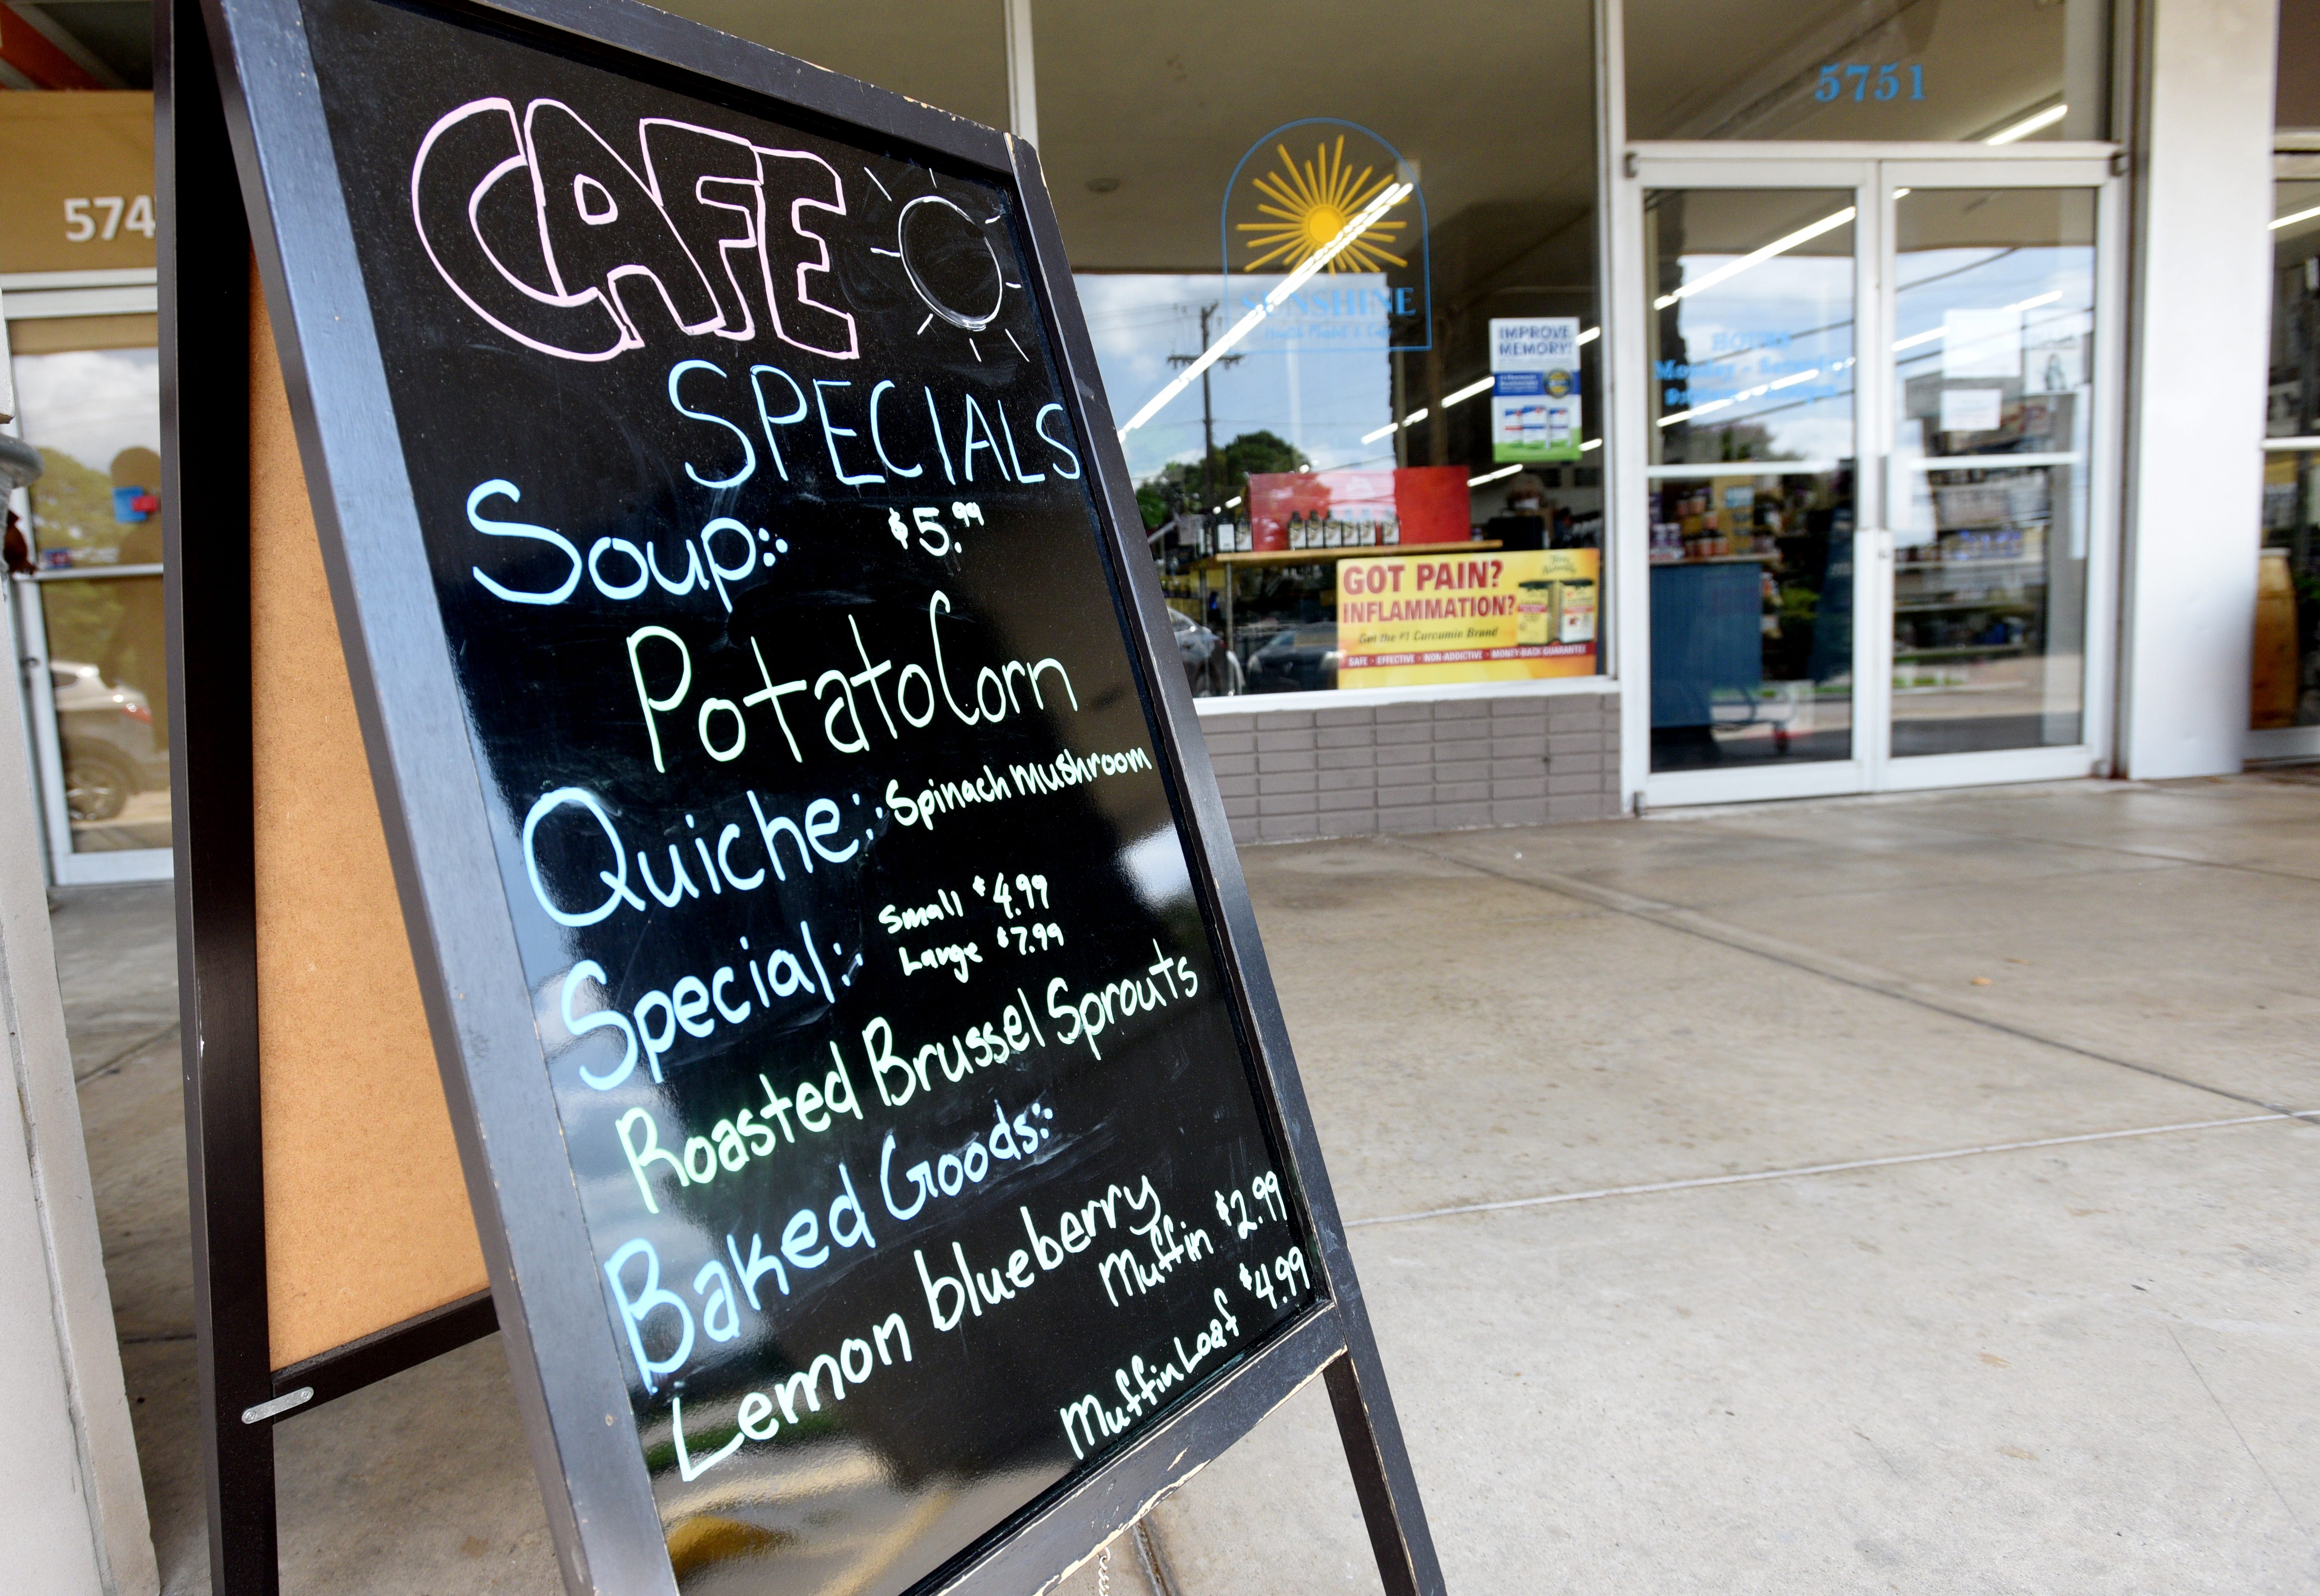 CAFE
SPECIALS
Soup: $5.99
Potato Corn
Quiche: Spinach mushroom
Special: Small $4.99
Large $7.99
Roasted Brussel Sprouts
Baked Goods:
Lemon blueberry
Muffin $2.99
Muffin Loaf $4.99
574
5751
SUNSHINE
IMPROVE
MEMORY!
HOURS
GOT PAIN?
INFLAMMATION?
Get the #1 Curcumin Brand
SAFE • EFFECTIVE • NON-ADDICTIVE • MONEY-BACK GUARANTEE